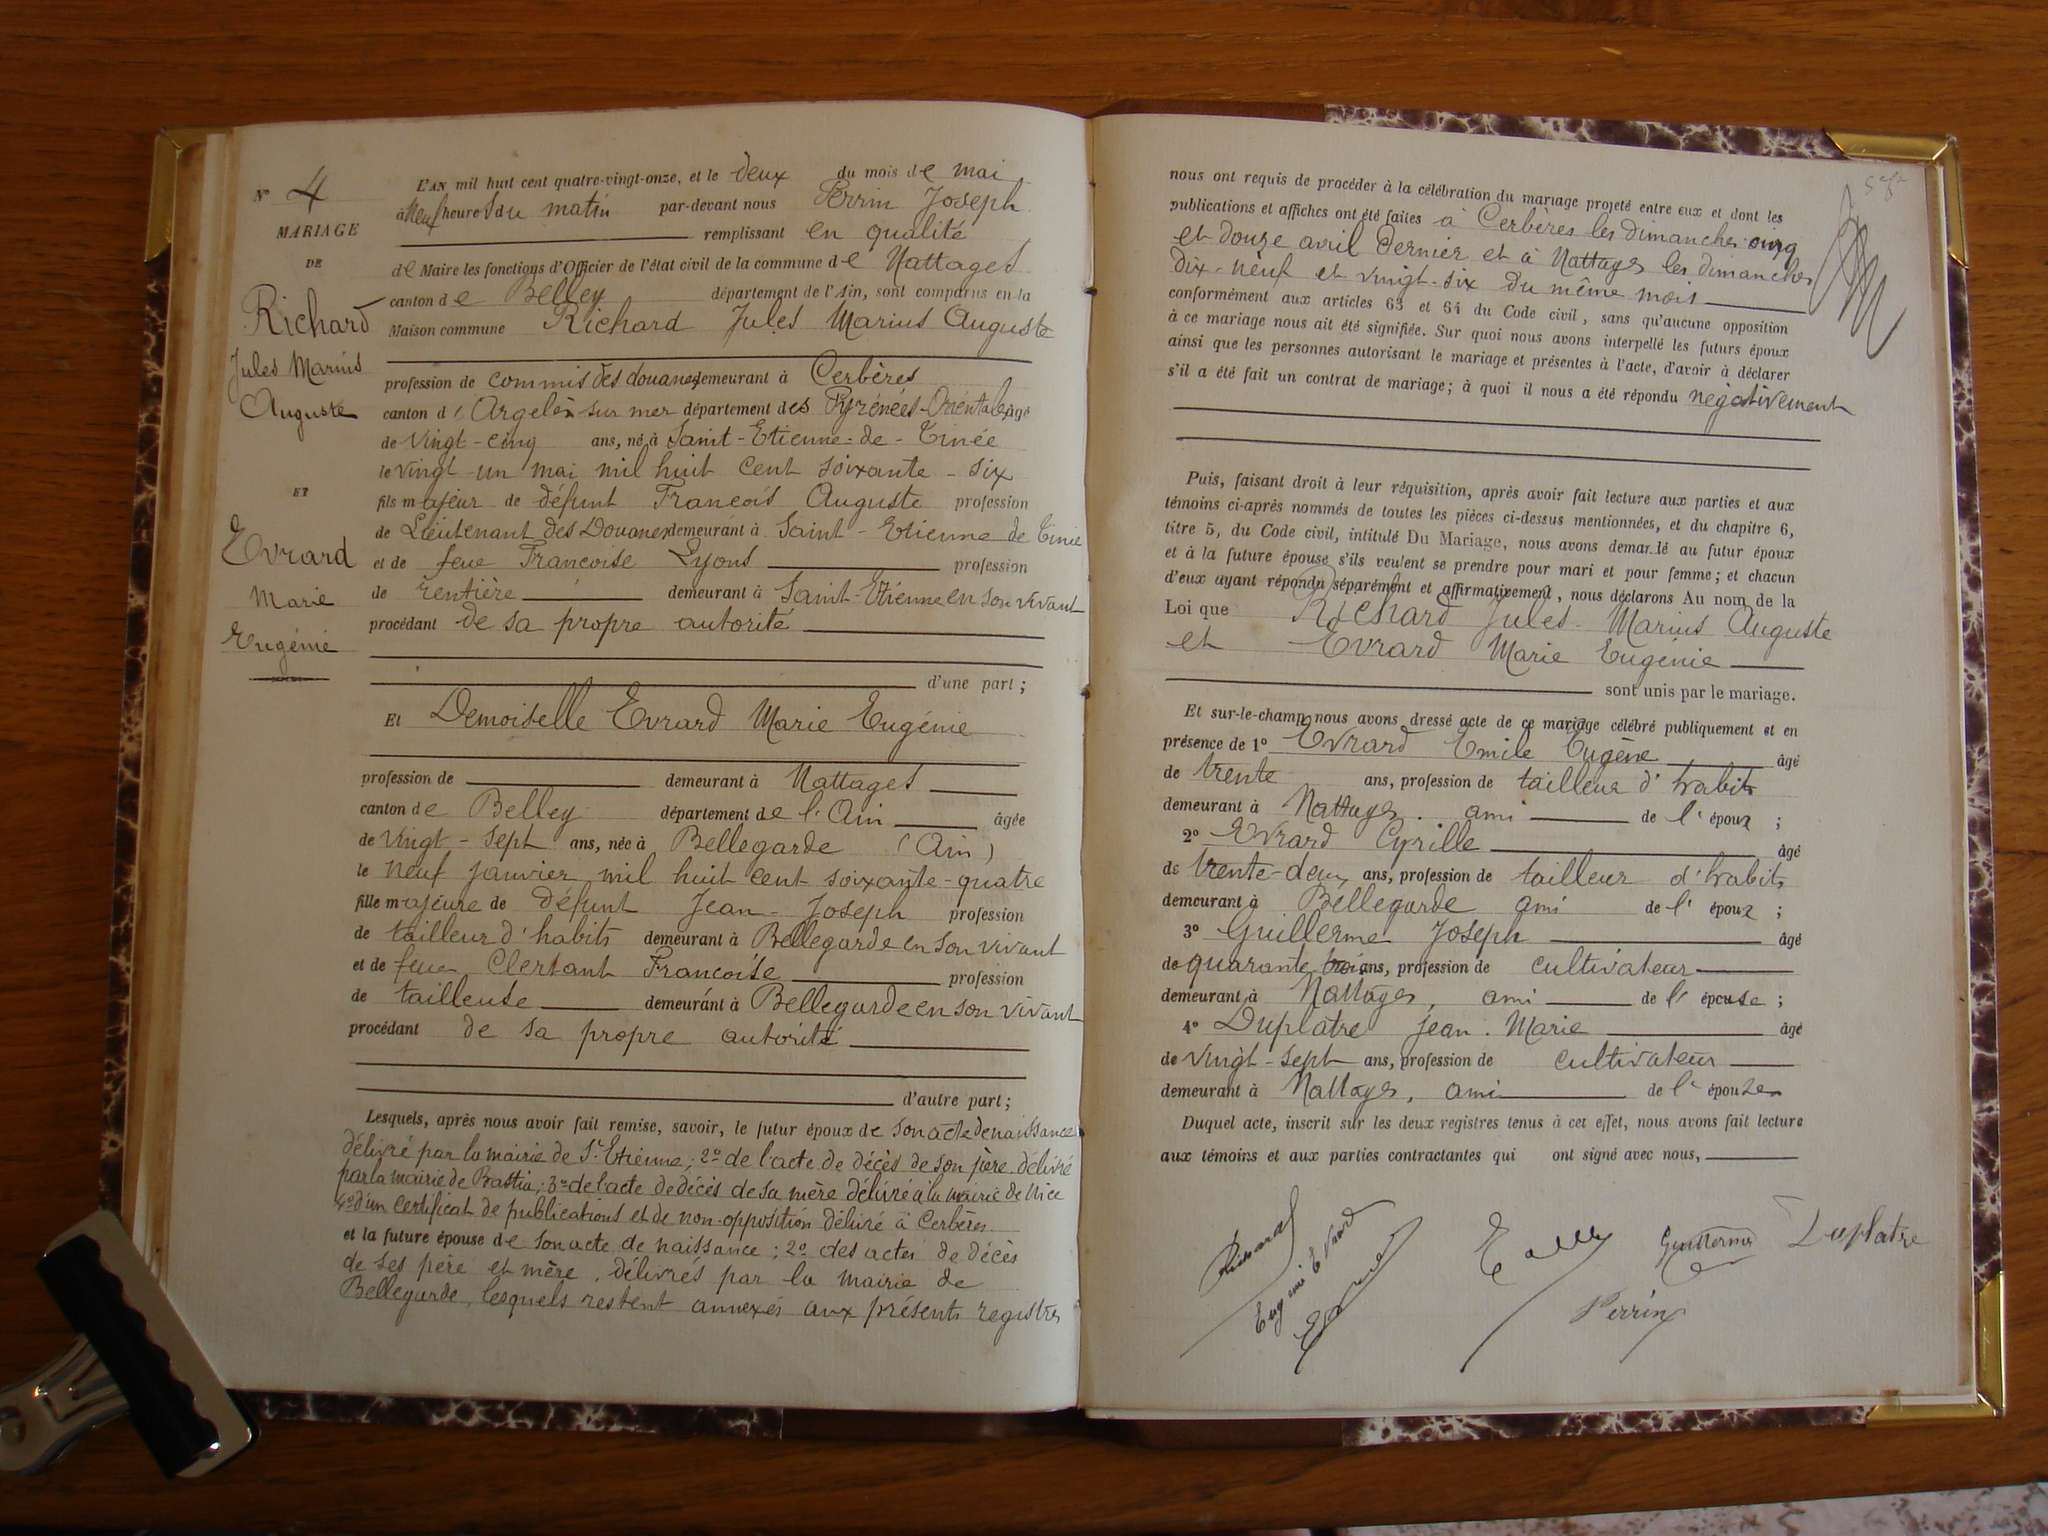 N° 4
MARIAGE
DE
Richard
Jules Marius
Auguste
ET
Evrard
Marie
Eugénie
L'AN mil huit cent quatre-vingt-onze, et le deux du mois de mai
à Neuf heures du matin par-devant nous Perrin Joseph
remplissant en qualité
de Maire les fonctions d'Officier de l'état civil de la commune de Nattages
canton de Belley département de l'Ain, sont comparus en la
Maison commune Richard Jules Marius Auguste
profession de commis des douanes demeurant à Cerbères
canton d'Argelès sur mer département des Pyrénées-Orientales, âgé
de Vingt-cinq ans, né à Saint-Etienne-de-Tinée
le vingt-un mai mil huit cent soixante-six
fils majeur de défunt François Auguste profession
de Lieutenant des Douanes demeurant à Saint-Etienne de Tinée
et de feue Françoise Lyons profession
de rentière demeurant à Saint-Etienne en son vivant
procédant de sa propre autorité
d'une part;
Et Demoiselle Evrard Marie Eugénie
profession de demeurant à Nattages
canton de Belley département de l'Ain âgée
de vingt-sept ans, née à Bellegarde (Ain)
le neuf janvier mil huit cent soixante-quatre
fille majeure de défunt Jean-Joseph profession
de tailleur d'habits demeurant à Bellegarde en son vivant
et de feue Clertant Françoise profession
de tailleuse demeurant à Bellegarde en son vivant
procédant de sa propre autorité
d'autre part;
Lesquels, après nous avoir fait remise, savoir, le futur époux de son acte de naissance
délivré par la mairie de St Etienne; 2° de l'acte de décès de son père délivré
par la mairie de Bastia; 3° de l'acte de décès de sa mère délivré à la mairie de Nice
4° d'un certificat de publications et de non-opposition délivré à Cerbères
et la future épouse de son acte de naissance; 2° des actes de décès
de ses père et mère, délivrés par la mairie de
Bellegarde, lesquels restent annexés aux présents registres
nous ont requis de procéder à la célébration du mariage projeté entre eux et dont les
publications et affiches ont été faites à Cerbères les dimanches cinq
et douze avril dernier et à Nattages les dimanches
dix-neuf et vingt-six du même mois
conformément aux articles 63 et 64 du Code civil, sans qu'aucune opposition
à ce mariage nous ait été signifiée. Sur quoi nous avons interpellé les futurs époux
ainsi que les personnes autorisant le mariage et présentes à l'acte, d'avoir à déclarer
s'il a été fait un contrat de mariage; à quoi il nous a été répondu négativement
Puis, faisant droit à leur réquisition, après avoir fait lecture aux parties et aux
témoins ci-après nommés de toutes les pièces ci-dessus mentionnées, et du chapitre 6,
titre 5, du Code civil, intitulé Du Mariage, nous avons demandé au futur époux
et à la future épouse s'ils veulent se prendre pour mari et pour femme; et chacun
d'eux ayant répondu séparément et affirmativement, nous déclarons Au nom de la
Loi que Richard Jules Marius Auguste
et Evrard Marie Eugénie
sont unis par le mariage.
Et sur-le-champ nous avons dressé acte de ce mariage célébré publiquement et en
présence de 1° Evrard Emile Eugène âgé
de trente ans, profession de tailleur d'habits
demeurant à Nattages. ami de l'époux;
2° Evrard Cyrille âgé
de trente-deux ans, profession de tailleur d'habits
demeurant à Bellegarde ami de l'époux;
3° Guillerme Joseph âgé
de quarante trois ans, profession de cultivateur
demeurant à Nattages, ami de l'épouse;
4° Duplatre Jean-Marie âgé
de vingt-sept ans, profession de cultivateur
demeurant à Nattages, ami de l'épouse
Duquel acte, inscrit sur les deux registres tenus à cet effet, nous avons fait lecture
aux témoins et aux parties contractantes qui ont signé avec nous,
Richard
Eugénie Evrard
Guillerme
Duplatre
Perrin